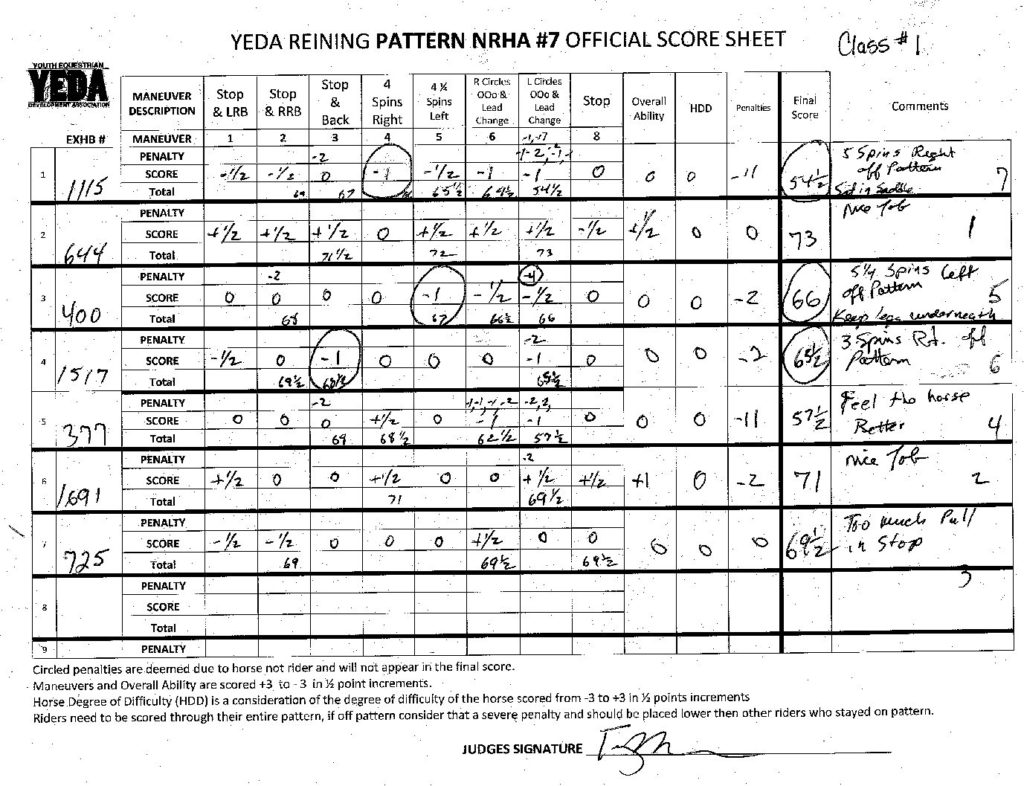 YEDA REINING PATTERN NRHA #7 OFFICIAL SCORE SHEET
Class #1
YOUTH EQUESTRIAN
YEDA
DEVELOPMENT ASSOCIATION
EXHB #
MANEUVER DESCRIPTION Stop & LRB Stop & RRB Stop & Back 4 Spins Right 4 ¼ Spins Left R Circles OOo & Lead Change L Circles OOo & Lead Change Stop Overall Ability HDD Penalties Final Score Comments
MANEUVER 1 2 3 4 5 6 8
1 1115
PENALTY -2
SCORE -1/2 -1/2 0 -1 -1/2 -1 -1 0 0 0 -11 54½
Total 69 67 65½ 64½ 54½
5 Spins Right
off Pattern
Sit in Saddle
7
2 644
PENALTY
SCORE +1/2 +1/2 +1/2 0 +1/2 +1/2 +1/2 -1/2 +1/2 0 0 73
Total 71½ 72 73
Nice Job
1
3 400
PENALTY -2 -4
SCORE 0 0 0 0 -1 -1/2 -1/2 0 0 0 -2 66
Total 68 67 66½ 66
5¼ Spins Left
off Pattern
Keep legs underneath
5
4 1517
PENALTY -2
SCORE -1/2 0 -1 0 0 0 -1 0 0 0 -2 65½
Total 69½ 68½ 65½
3 Spins Rt. off
Pattern
6
5 377
PENALTY -2 -1,-1,-1,-2 -2,2,
SCORE 0 0 0 +1/2 0 -1 -1 0 0 0 -11 57½
Total 69 68½ 62½ 57½
Feel the horse
Better
4
6 1691
PENALTY -2
SCORE +1/2 0 0 +1/2 0 0 +1/2 +1/2 +1 0 -2 71
Total 71 69½
Nice Job
2
7 725
PENALTY
SCORE -1/2 -1/2 0 0 0 +1/2 0 0 0 0 0 69½
Total 69 69½ 69½
Too much Pull
in Stop
3
8
PENALTY
SCORE
Total
9 PENALTY
Circled penalties are deemed due to horse not rider and will not appear in the final score.
Maneuvers and Overall Ability are scored +3 to - 3 in ½ point increments.
Horse Degree of Difficulty (HDD) is a consideration of the degree of difficulty of the horse scored from -3 to +3 in ½ points increments
Riders need to be scored through their entire pattern, if off pattern consider that a severe penalty and should be placed lower then other riders who stayed on pattern.
JUDGES SIGNATURE